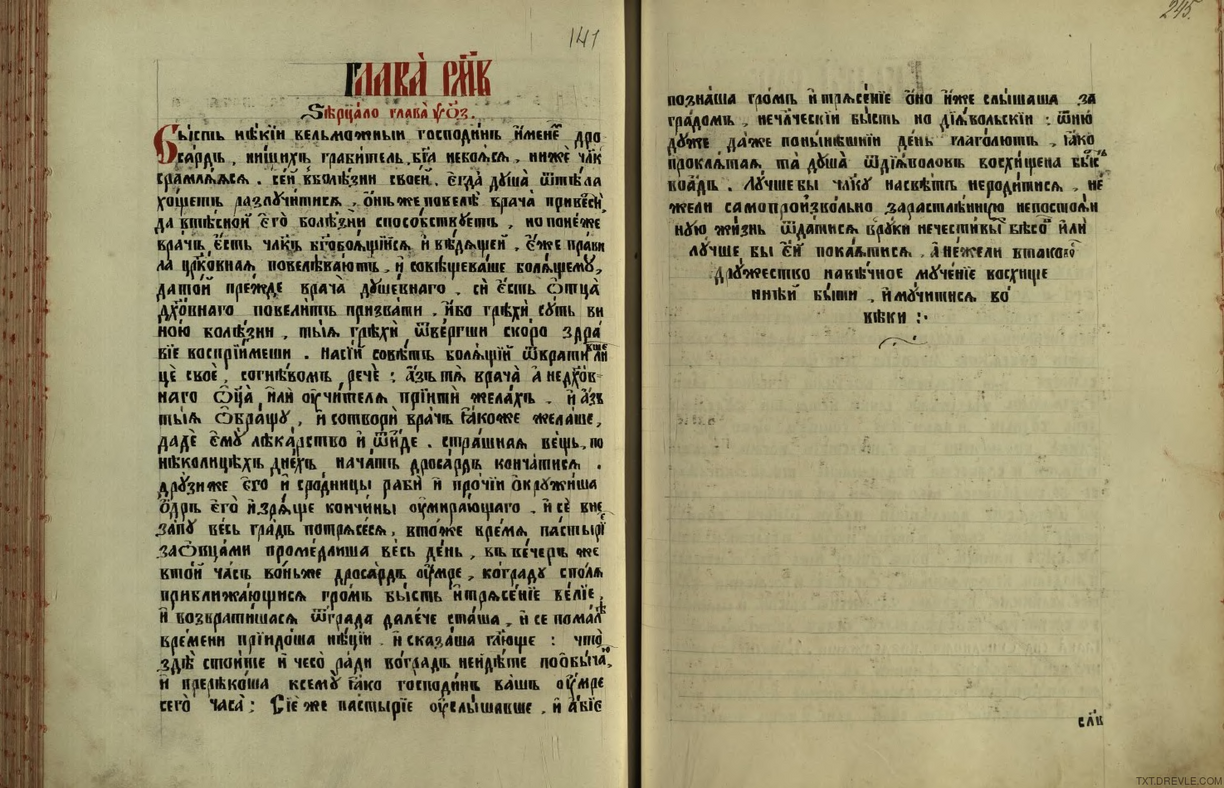 141
Глава̀ рм҃в
Ѕѣрцало глава̀ ѱѻ҃з.
Бысть нѣкїи вельможныи господинъ именемъ дро
сардъ, нищихъ грабитель, бг҃а небоѧсѧ, ниже чл҃къ
срамлѧѧсѧ. сеи вболѣзни своей. егда душа ѿтѣла
хощетъ разлучитисѧ, онъже повелѣ врача привести
да втѣсной его болѣзни способствуетъ, но понеже
врачъ есть чл҃къ бг҃обоѧщїисѧ и вѣдѧщеи, еже прави
ла цр҃ковнаѧ повелѣваютъ, и совѣщеваше болѧщему,
датой прежде врача душевнаго. си есть ѻтца
дх҃овнаго повелитъ призвати. ибо грѣхи суть ви
ною болѣзни, тыѧ грѣхи ѿвергши скоро здра
вїе воспрїимеши. насїй совѣтъ болѧщїй ѿвративше ли
цѐ своѐ, согнѣвомъ рече: азъ тѧ врача а недх҃ов
наго ѻц҃а или оучителѧ прїити желахъ. и азъ
тыѧ ѻбращу, и сотвори врачъ ꙗкоже желаше,
даде ему лѣкарство и ѿиде. страшнаѧ вещь, по
нѣколицѣхъ днехъ начатъ дросардъ кончатисѧ.
друзиже его и сродницы раби и прочїи окружиша
одръ его изрѧще кончины оумирающаго. и се вне
запу весь градъ потрѧсесѧ, втоже времѧ пастырїе
заѻвцами промедлиша весь день, въ вечеръ же
втой часъ воньже дросардъ оумре, кограду сполѧ
приближающисѧ громъ бысть итрѧсенїе велїе,
и возвратишасѧ ѿграда далече сташа, и се помалѣ
времени прїидоша нѣцїи и сказаша гл҃юще: что
здѣ стоите и чесо ради воградъ неидѣте пообычаю,
и прерѣкоша ксему ꙗко господинъ вашъ оумре
сего часа: Сїе же пастырїе оуслышавше, и абїе
245.
познаша громъ итрѧсенїе оно иже слышаша за
градомъ, нечл҃ческїй бысть но дїѧвольскїи: ѿню
дуже даже понынѣшнїи день глаголютъ, ꙗко
проклѧтаѧ та душа ѿдїѧволовъ восхищена бысть
воадъ. Лучше бы чл҃ку насвѣтъ неродитисѧ, не
жели самопроизвольно зарастлѣнную непостоѧн
ную жизнь ѿдатисѧ вруки нечестивыхъ бѣсовъ или
лучше бы ей покаѧтисѧ, анежели втаковое
дружество навѣчное мученїе восхище
ннѣй быти, имучитисѧ во
вѣки :·
сл҃в
TXT.DREVLE.COM